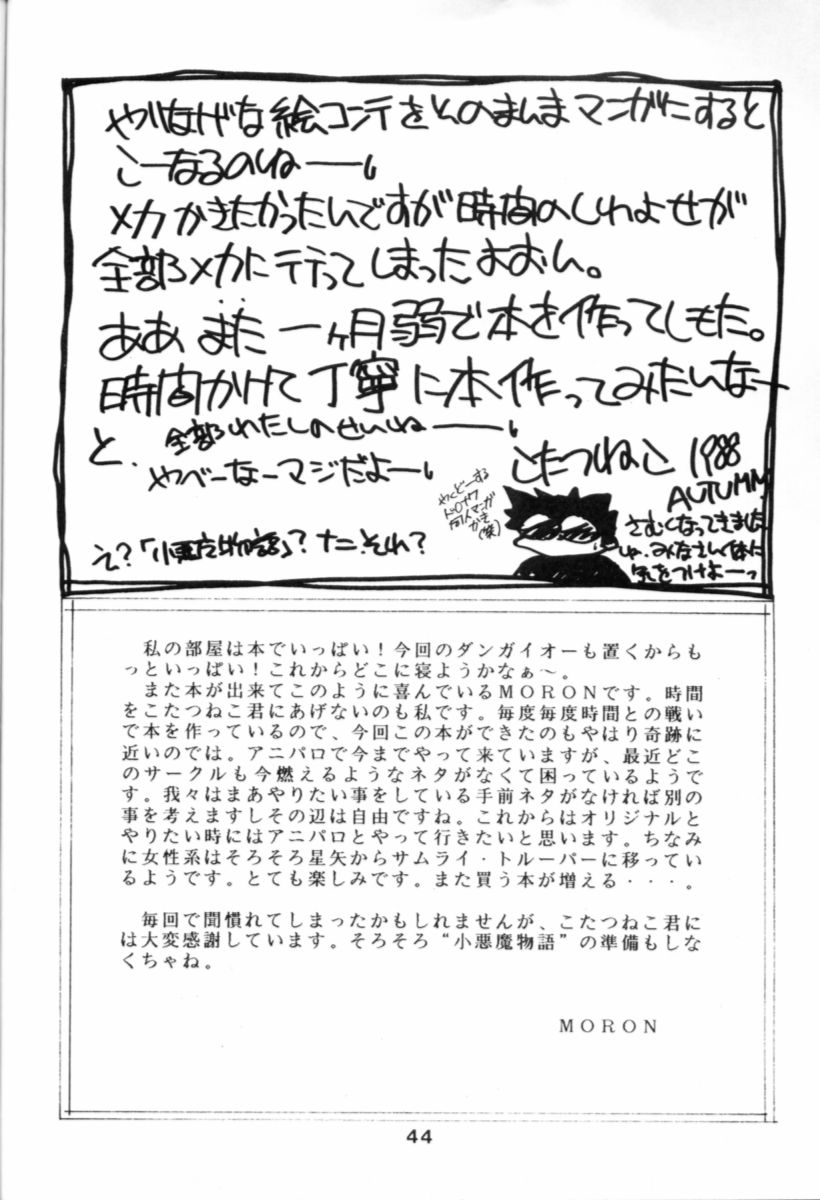 やりなげな絵コンテをそのまんまマンガにすると
こーなるのねーー
メカかきたかったんですが時間のしわよせが
全部メカに行ってしまったよおん。
ああ また 一ヶ月弱で本を作ってしもた。
時間かけて丁寧に本作ってみたいなー
と. 全部わたしのせいねーー
やべーなーマジだよー
こたつねこ 1988
AUTUMN
さむくなってきました
みなさん体に
気をつけよーっ
え?「小悪魔物語」? ナニそれ?
私の部屋は本でいっぱい!今回のダンガイオーも置くからも
っといっぱい!これからどこに寝ようかなぁ~。
また本が出来てこのように喜んでいるMORONです。時間
をこたつねこ君にあげないのも私です。毎度毎度時間との戦い
で本を作っているので、今回この本ができたのもやはり奇跡に
近いのでは。アニパロで今までやって来ていますが、最近どこ
のサークルも今燃えるようなネタがなくて困っているようで
す。我々はまあやりたい事をしている手前ネタがなければ別の
事を考えますしその辺は自由ですね。これからはオリジナルと
やりたい時にはアニパロとやって行きたいと思います。ちなみ
に女性系はそろそろ星矢からサムライ・トルーパーに移ってい
るようです。とても楽しみです。また買う本が増える・・・。
毎回で聞慣れてしまったかもしれませんが、こたつねこ君に
は大変感謝しています。そろそろ“小悪魔物語”の準備もしな
くちゃね。
MORON
44